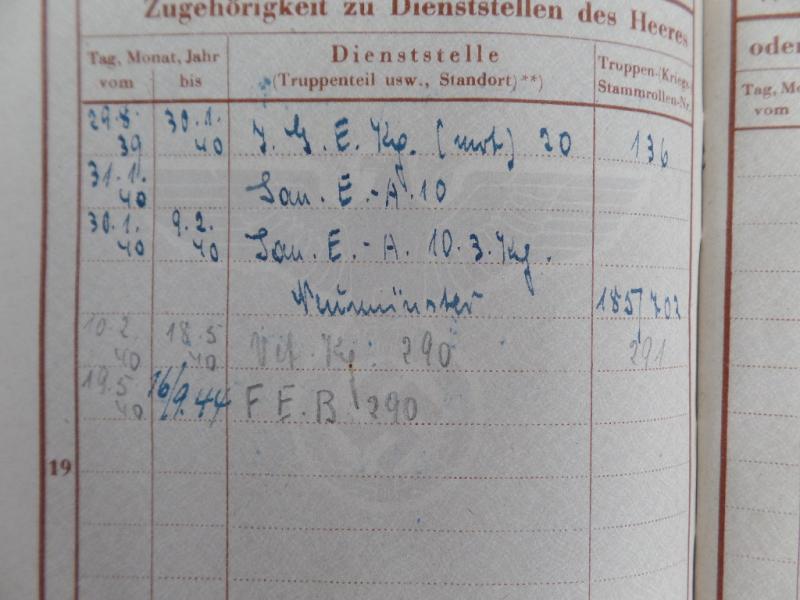 Zugehörigkeit zu Dienststellen des Heeres
Tag, Monat, Jahr
vom bis
Dienststelle
(Truppenteil usw., Standort)**)
Truppen-(Kriegs-
Stammrollen-Nr.
29.8. 39 30.1. 40 J. G. E. Kp. (mot.) 20 136
31.1. 40 San. E.-A. 10
30.1. 40 9.2. 40 San. E.-A. 10. 3. Kp.
Neumünster 185/702
10.2. 40 18.5 40 Kp. 290 291
19.5 40 16/9.44 F E. B. 290
19
oder
Tag, Mo
vom